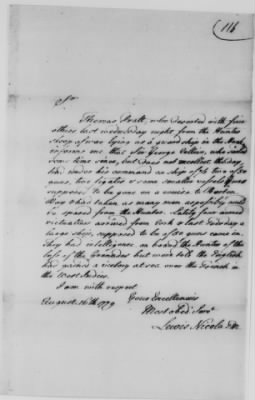 116
Sir
Thomas Pratt, who deserted with five
others last wednesday night from the Hunter
sloop of war lying as a guard ship in the
informs me that Sir George Collier, who sailed
some time since, but does not recollect the day,
had under his command a ship of 64 two of 50
guns, two frigates & some smaller vessels &
supposed to be gone on a cruise to Boston
Bay & had taken as many men as possibly could
be spared from the Hunter. Lately four armed
victuallers arrived from Cork & last tuesday a
large ship, supposed to be of 50 guns came in.
They had intelligence on board the Hunter of the
loss of the Grenades but were told the English
had gained a victory at sea over the French in
the West Indies.
I am with respect
August 16th 1779 Your Excellencies
Most obed Servt
Lewis Nicola